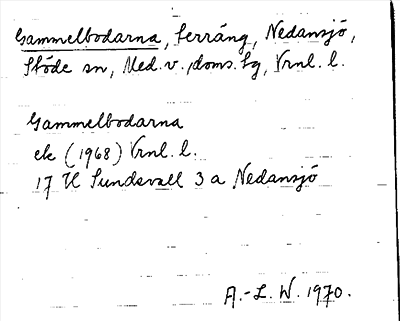 Gammelbodarna, terräng, Nedansjö,
Stöde sn, Med.v. doms.sg, Vrnl. l.
Gammelbodarna
ek (1968) Vrnl. l.
17 H Sundsvall 3 a Nedansjö
A.-L. W. 1970.